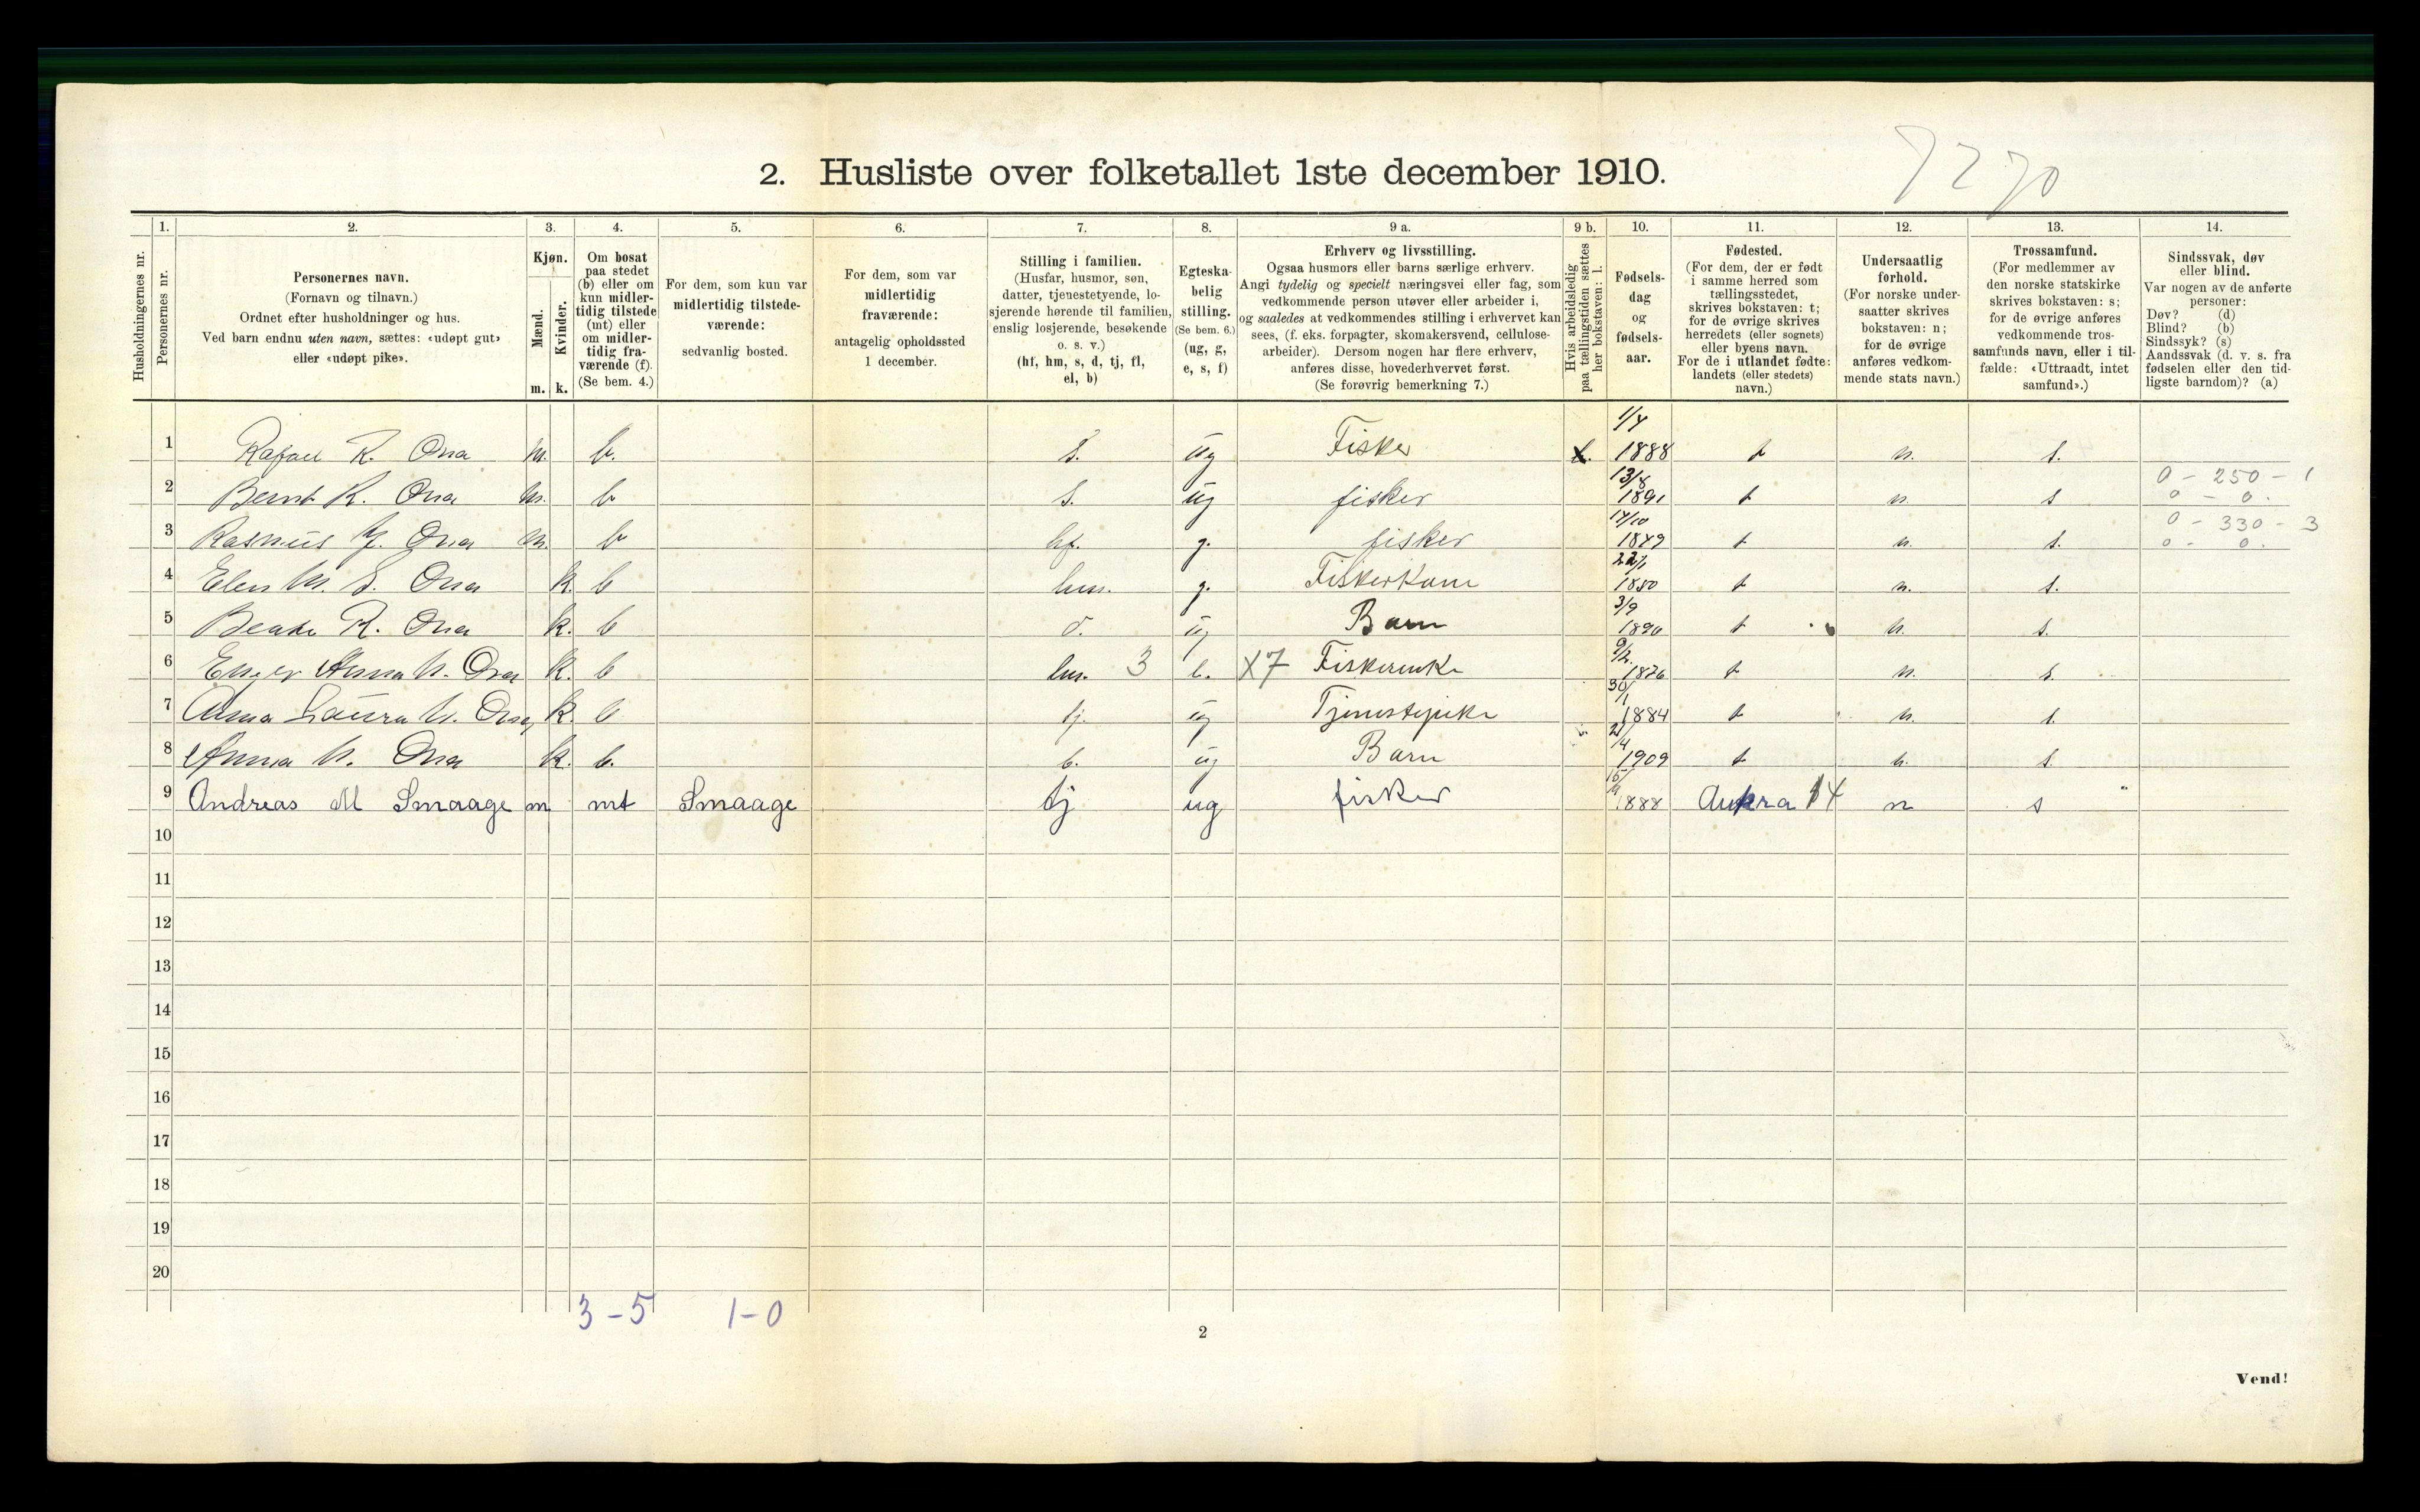 2. Husliste over folketallet 1ste december 1910.
7270
Husholdningernes nr.
1. Personernes nr.
2. Personernes navn.
(Fornavn og tilnavn.)
Ordnet efter husholdninger og hus.
Ved barn endnu uten navn, sættes: «udøpt gut»
eller «udøpt pike».
3. Kjøn.
Mænd. m.
Kvinder. k.
4. Om bosat
paa stedet
(b) eller om
kun midler-
tidig tilstede
(mt) eller
om midler-
tidig fra-
værende (f).
(Se bem. 4.)
5. For dem, som kun var
midlertidig tilstede-
værende:
sedvanlig bosted.
6. For dem, som var
midlertidig
fraværende:
antagelig opholdssted
1 december.
7. Stilling i familien.
(Husfar, husmor, søn,
datter, tjenestetyende, lo-
sjerende hørende til familien,
enslig losjerende, besøkende
o. s. v.)
(hf, hm, s, d, tj, fl,
el, b)
8. Egteska-
belig
stilling.
(Se bem. 6.)
(ug, g,
e, s, f)
9 a. Erhverv og livsstilling.
Ogsaa husmors eller barns særlige erhverv.
Angi tydelig og specielt næringsvei eller fag, som
vedkommende person utøver eller arbeider i,
og saaledes at vedkommendes stilling i erhvervet kan
sees, (f. eks. forpagter, skomakersvend, cellulose-
arbeider). Dersom nogen har flere erhverv,
anføres disse, hovederhvervet først.
(Se forøvrig bemerkning 7.)
9 b. Hvis arbeidsledig
paa tællingstiden sættes
her bokstaven: l.
10. Fødsels-
dag
og
fødsels-
aar.
11. Fødested.
(For dem, der er født
i samme herred som
tællingsstedet,
skrives bokstaven: t;
for de øvrige skrives
herredets (eller sognets)
eller byens navn.
For de i utlandet fødte:
landets (eller stedets)
navn.)
12. Undersaatlig
forhold.
(For norske under-
saatter skrives
bokstaven: n;
for de øvrige
anføres vedkom-
mende stats navn.)
13. Trossamfund.
(For medlemmer av
den norske statskirke
skrives bokstaven: s;
for de øvrige anføres
vedkommende tros-
samfunds navn, eller i til-
fælde: «Uttraadt, intet
samfund».)
14. Sindssvak, døv
eller blind.
Var nogen av de anførte
personer:
Døv? (d)
Blind? (b)
Sindssyk? (s)
Aandssvak (d. v. s. fra
fødselen eller den tid-
ligste barndom)? (a)
1 Rafael R. Ona m. b. s. ug Fisker 1/4 1888 t n. s.
2 Bernt R. Ona m. b s. ug fisker 13/8 1891 t n. s 0 - 250 - 1
0 - 0.
3 Rasmus Ona m. b hf. g. fisker 14/10 1849 t n. s. 0 - 330 - 3
0 - 0.
4 Elen M. S. Ona k. b hm. g. Fiskerkone 1850 t n. s.
5 Beate R. Ona k. b d. ug Barn 3/9 1890 t n. s.
6 Anna Ona k. b hm. 3 e. X7 Fiskerenke 9/2 1876 t n. s.
7 Anna Laura Ona k. b tj. ug Tjenestepike 30/1 1884 t n. s.
8 Anna N. Ona k. b. b. ug Barn 1909 t n. s.
9 Andreas M Smaage m mt Smaage tj ug fisker 1888 Aukra 14 n s
10
11
12
13
14
15
16
17
18
19
20
3 - 5 1 - 0
2
Vend!